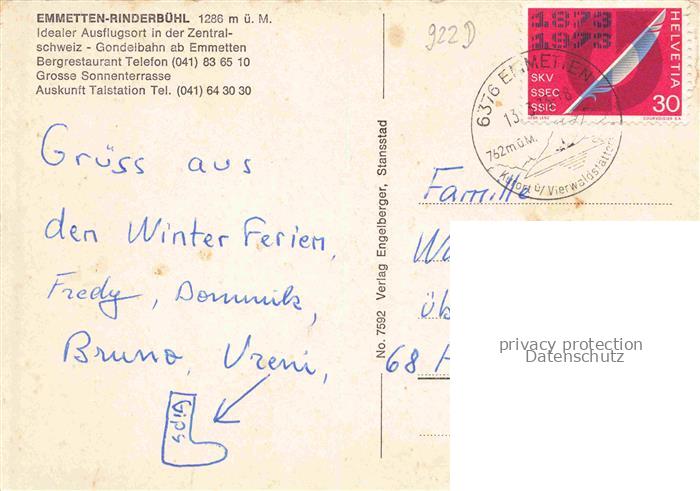 EMMETTEN-RINDERBÜHL 1286 m ü. M.
Idealer Ausflugsort in der Zentral-
schweiz - Gondelbahn ab Emmetten
Bergrestaurant Telefon (041) 83 65 10
Grosse Sonnenterrasse
Auskunft Talstation Tel. (041) 64 30 30
922 D
1873
1973
SKV
SSEC
SSIC
HELVETIA
30
COURVOISIER S.A.
6376 EMMETTEN
762 m ü. M.
Kurort ü/Vierwaldstättersee
Grüss aus
den Winter Ferien,
Fredy, Dominik,
Bruno, Vreni,
Gips
No. 7592 Verlag Engelberger, Stansstad
Familie
üb
68
privacy protection
Datenschutz